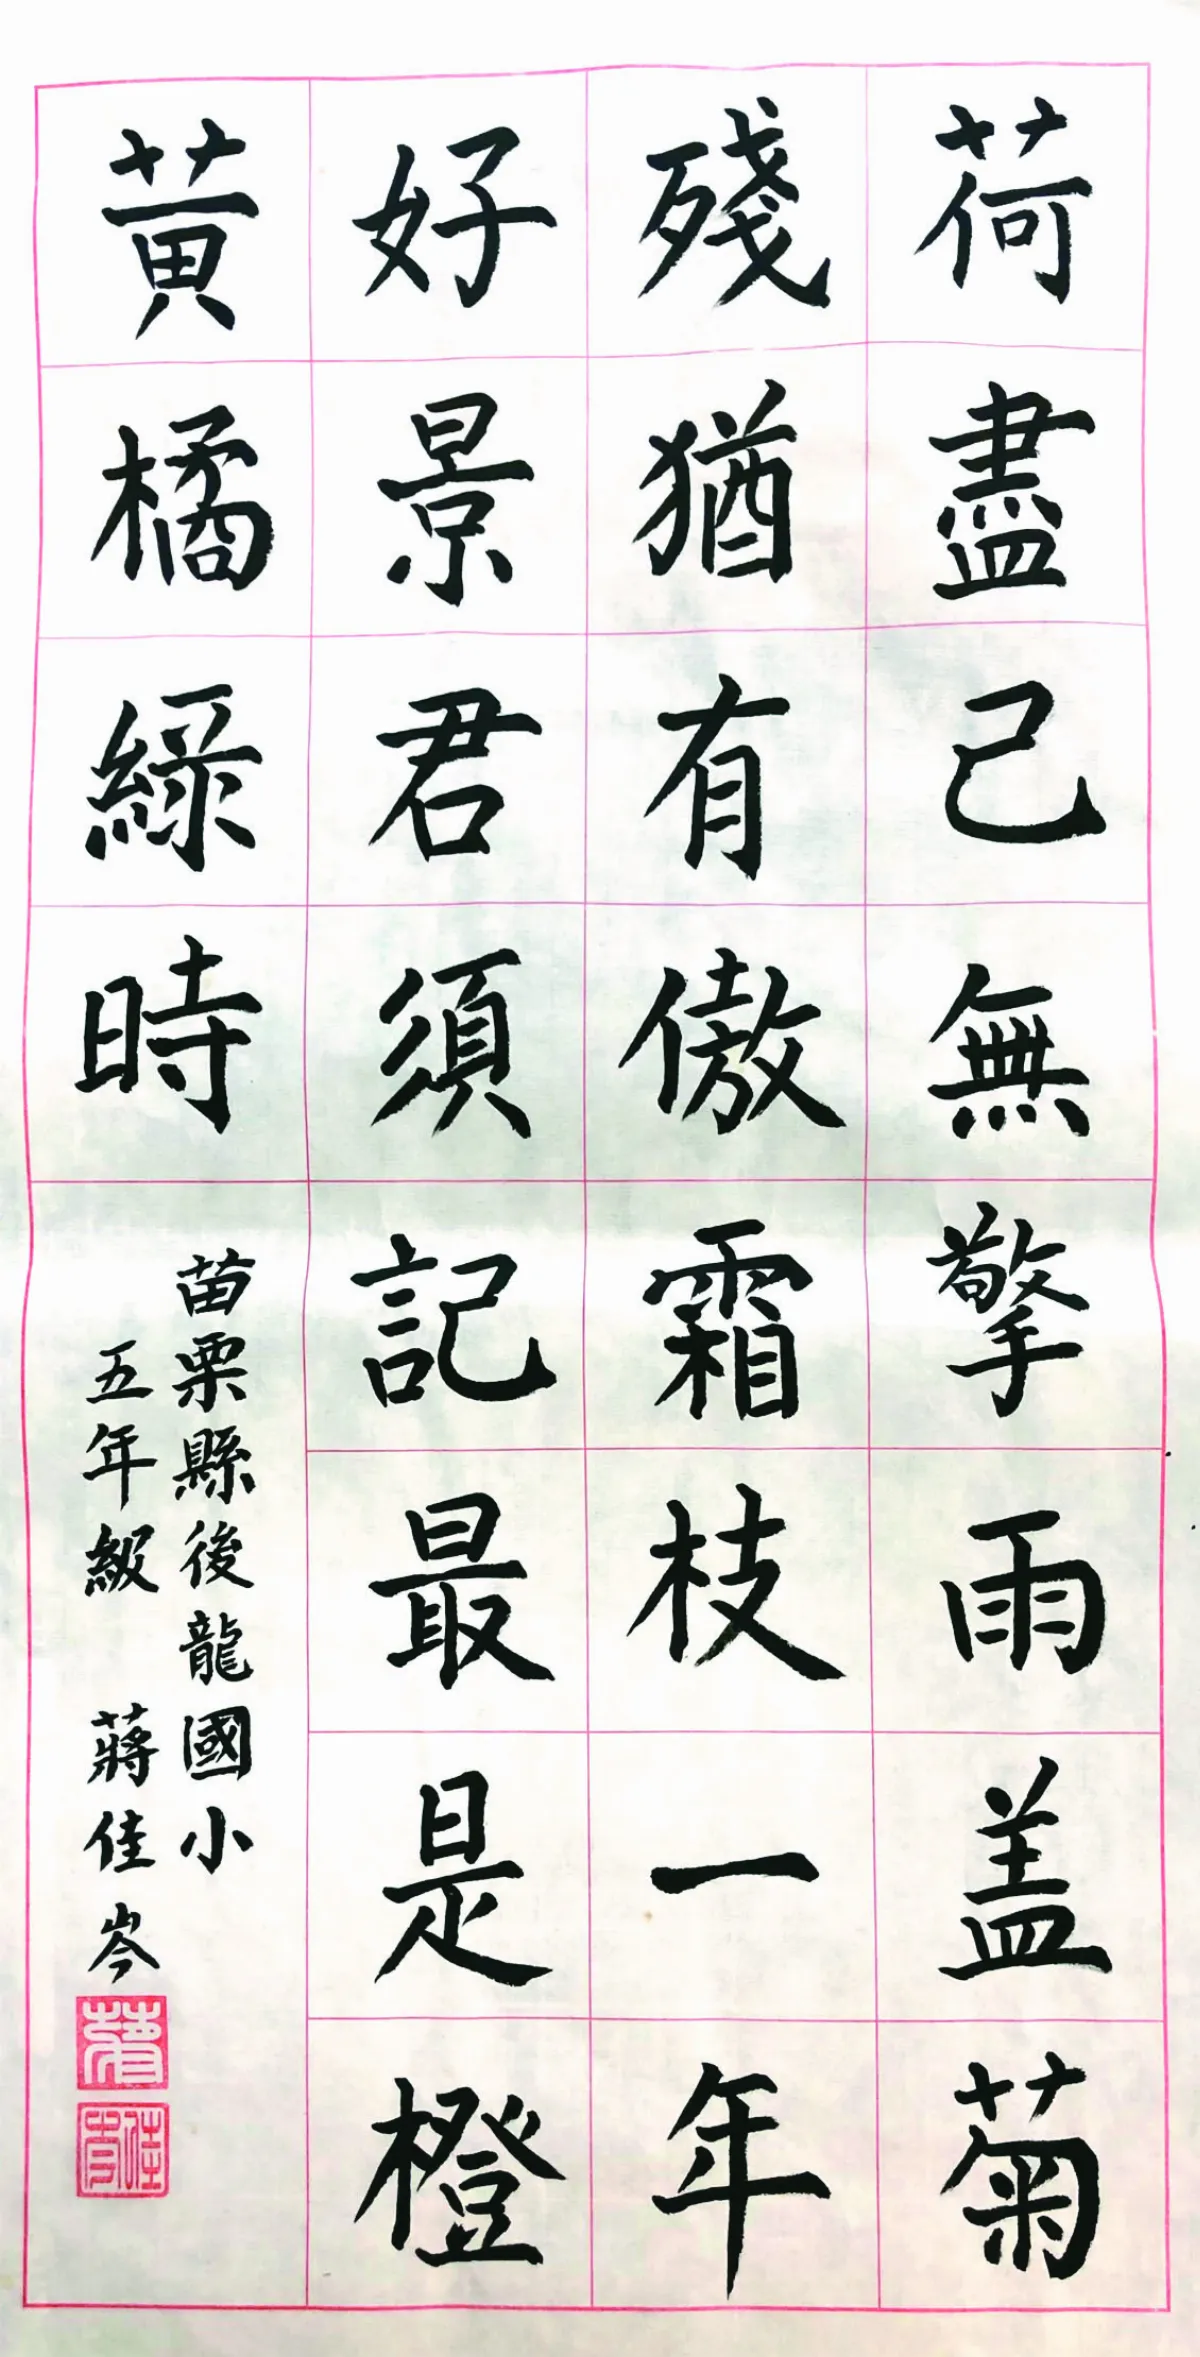 荷盡已無擎雨盖菊
殘猶有傲霜枝一年
好景君須記最是橙
黄橘緑時
苗栗縣後龍國小
五年級 蔣佳岑